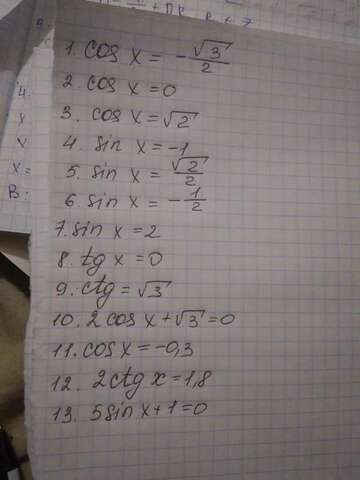 1. cos x = -√3/2
2. cos x = 0
3. cos x = √2
4. sin x = -1
5. sin x = √2/2
6. sin x = -1/2
7. sin x = 2
8. tg x = 0
9. ctg = √3
10. 2 cos x + √3 = 0
11. cos x = -0,3
12. 2ctg x = 1,8
13. 5sin x + 1 = 0